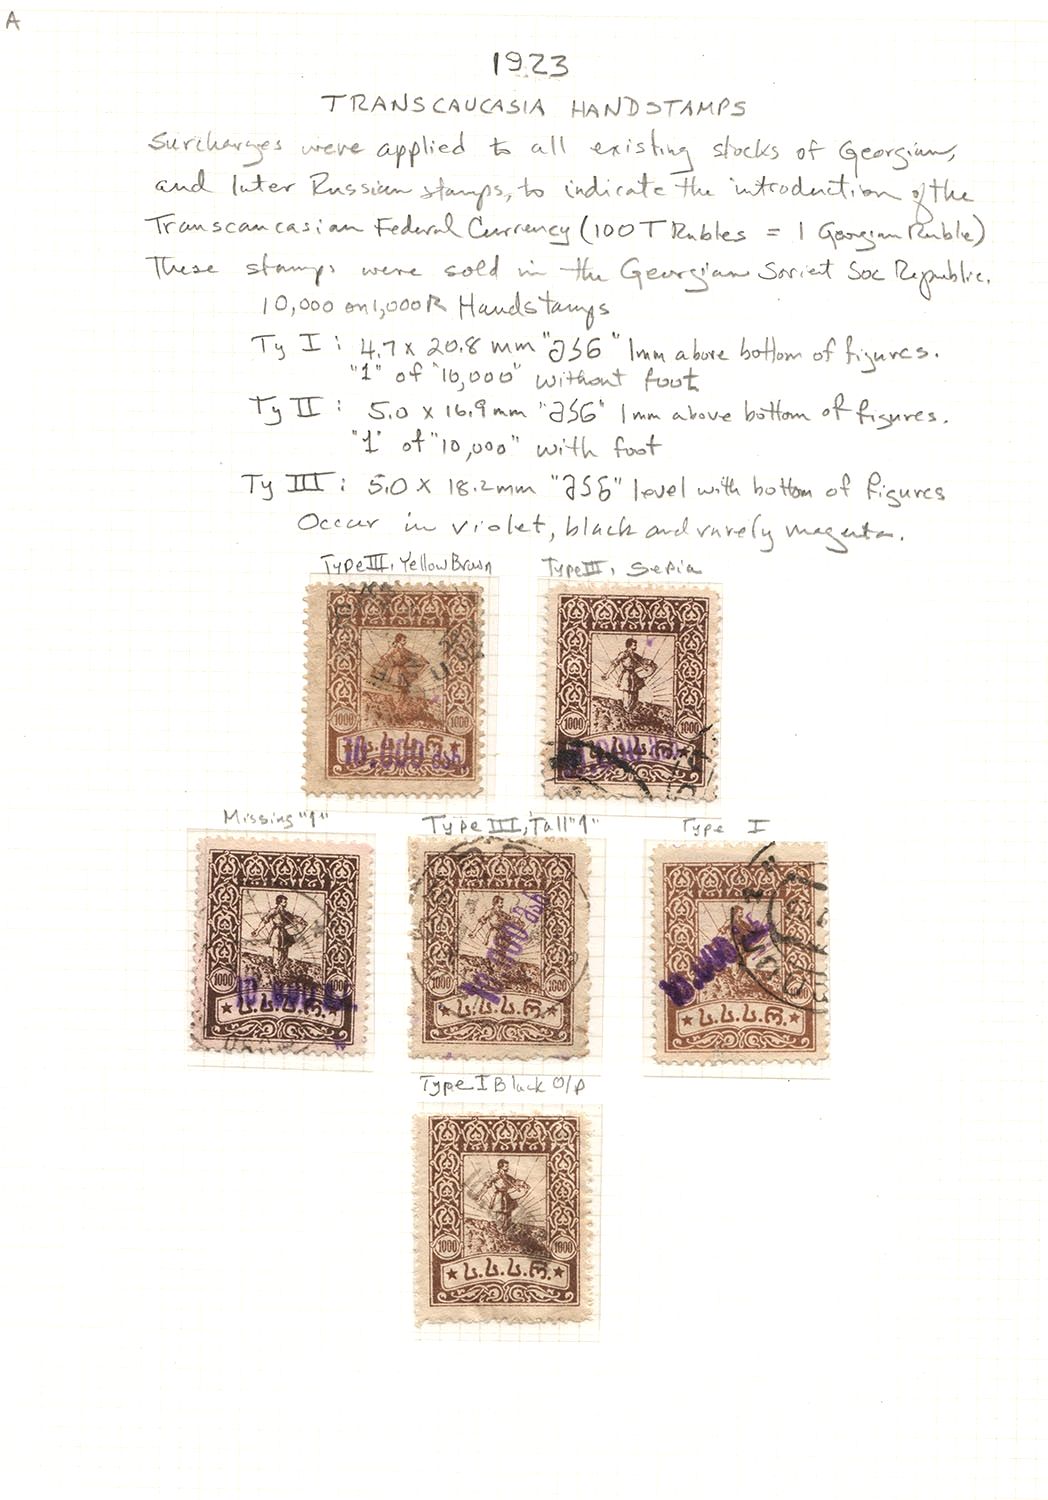 A
1923
TRANSCAUCASIA HANDSTAMPS
Surcharges were applied to all existing stocks of Georgian,
and later Russian stamps, to indicate the introduction of the
Transcaucasian Federal Currency (100 T Rubles = 1 Georgian Ruble)
These stamps were sold in the Georgian Soviet Soc Republic.
10,000 on 1,000R Handstamps
Ty I : 4.7 x 20.8 mm "მან" 1mm above bottom of figures.
"1" of "10,000" without foot
Ty II : 5.0 x 16.9mm "მან" 1mm above bottom of figures.
"1" of "10,000" with foot
Ty III : 5.0 x 18.2mm "მან" level with bottom of figures
Occur in violet, black and rarely magenta.
Type III, Yellow Brown
Type III, Sepia
1000 1000
10.000 მან.
1000 1000
Missing "1"
Type III, Tall "1"
Type I
1000
ს.ს.ს.რ.
1000 1000
10.000 მან
ს.ს.ს.რ.
10.000
ს.ს.ს.რ.
Type I Black O/P
1000 1000
ს.ს.ს.რ.